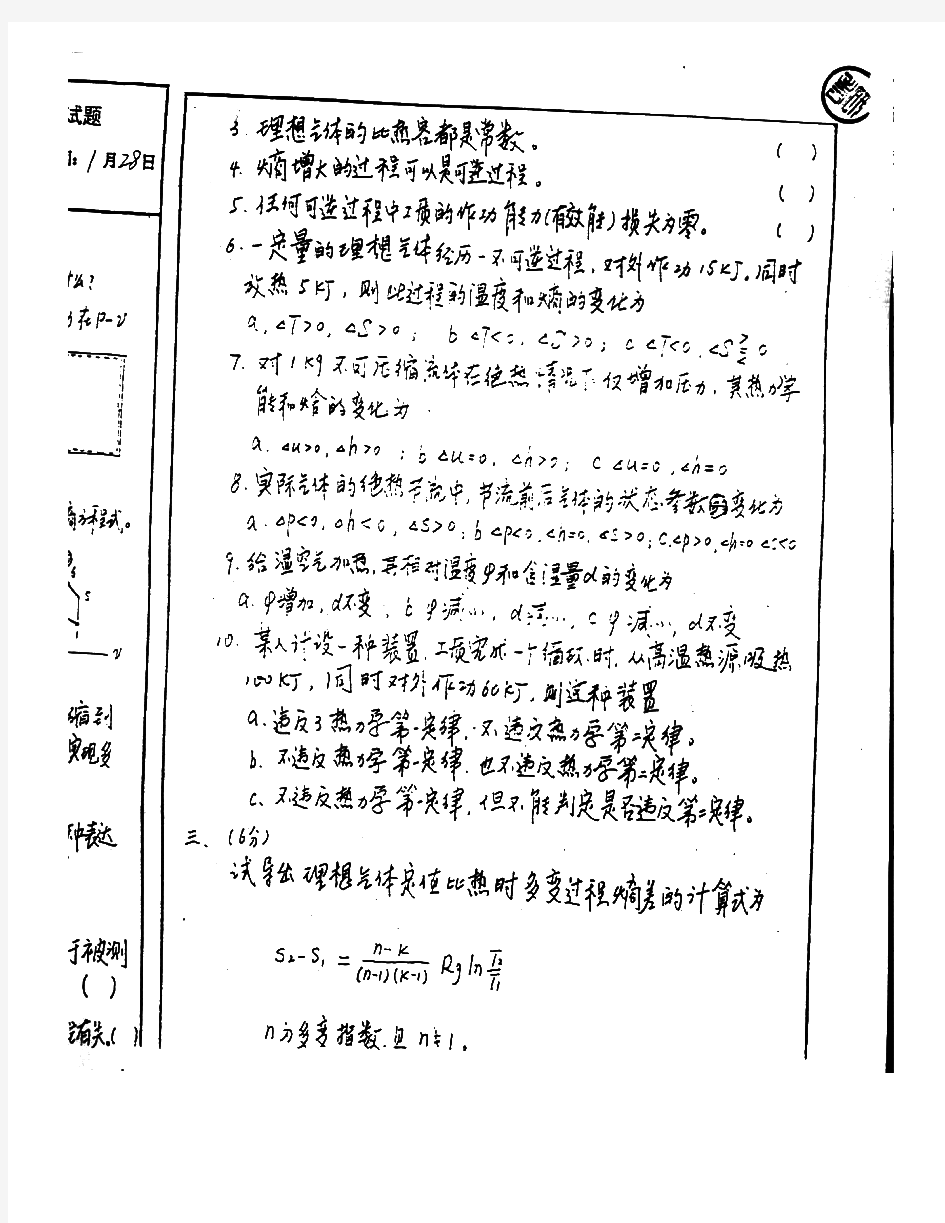 试题
月28日
么?
在P-v
程式。
s
v
缩到
实现多
种表达
于被测
( )
有关。( )
3. 理想气体的比热容都是常数。 ( )
4. 熵增大的过程可以是可逆过程。 ( )
5. 任何可逆过程中工质的作功能力(有效能)损失为零。 ( )
6. 一定量的理想气体经历一不可逆过程,对外作功15KJ。同时
放热5KJ,则此过程的温度和熵的变化为
a, △T>0, △S>0; b △T<0, △S>0; c △T<0, △S⋛0
7. 对1Kg不可压缩流体在绝热情况下仅增加压力,其热力学
能和焓的变化为
a. △u>0, △h>0; b △u=0, △h>0; c △u=0, △h=0
8. 实际气体的绝热节流中,节流前后气体的状态参数的变化为
a. △p<0, △h<0, △s>0; b △p<0, △h=0, △s>0; c. △p>0, △h=0 △s<0
9. 给湿空气加热,其相对湿度φ和含湿量d的变化为
a. φ增加, d不变, b φ减…, d…, c φ减…, d不变
10. 某人计设一种装置,工质完成一个循环时,从高温热源吸热
100KJ,同时对外作功60KJ,则这种装置
a. 违反了热力学第一定律,不违反热力学第二定律。
b. 不违反热力学第一定律,也不违反热力学第二定律。
c. 不违反热力学第一定律,但不能判定是否违反第二定律。
三、(6分)
试导出理想气体定值比热时多变过程熵差的计算式为
S₂-S₁ = (n-K)/((n-1)(K-1)) Rg ln T₂/T₁
n为多变指数且n≠1。